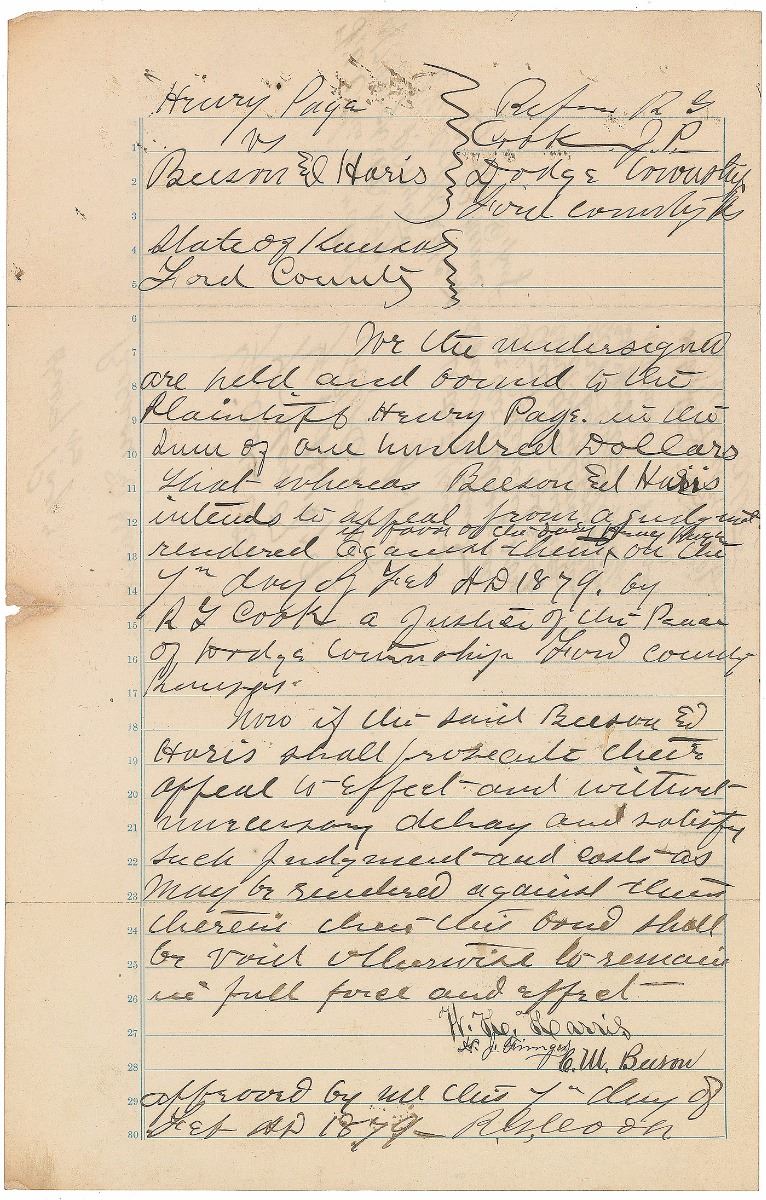 Henry Page
vs
Beeson Ed Haris
Before R G
Cook J.P.
Dodge Township
Ford County Ks
State of Kansas
Ford County
We the undersigned
are held and bound to the
Plaintiff Henry Page. in the
Sum of one hundred Dollars
that whereas Beeson Ed Haris
intends to appeal from a judgment
in favor of the said Henry Page
rendered against them on the
7th day of Feb AD 1879. by
R G Cook a Justice of the Peace
of Dodge Township Ford County
Kansas.
Now if the said Beeson Ed
Haris shall prosecute their
appeal to effect and without
unnecessary delay and satisfy
such Judgment and costs as
may be rendered against them
therein then this bond shall
be void otherwise to remain
in full force and effect
W. H. Harris
C. M. Beeson
approved by me this 7th day of
Feb AD 1879 R. G. Cook
1
2
3
4
5
6
7
8
9
10
11
12
13
14
15
16
17
18
19
20
21
22
23
24
25
26
27
28
29
30